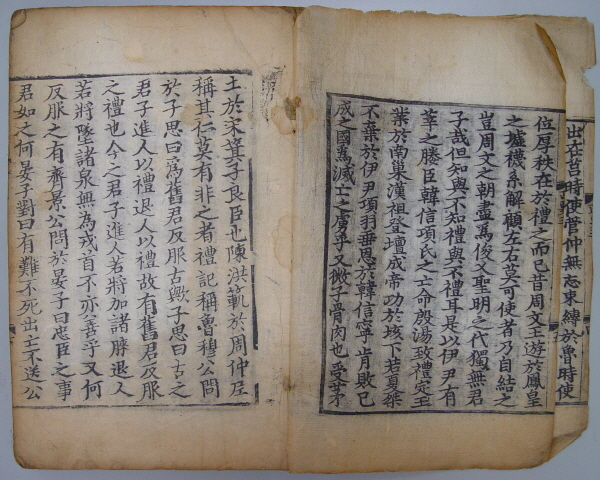 出在莒時使管仲無忘束縛於魯時使
位厚秩在於禮之而已昔周文王遊於鳳皇
之墟襪系解顧左右莫可使者乃自結之
豈周文之朝盡爲俊乂聖明之代獨無君
子哉但知與不知禮與不禮耳是以伊尹有
莘之媵臣韓信項氏之亡命殷湯致禮定王
業於南巢漢祖登壇成帝功於垓下若夏桀
不棄於伊尹項羽垂恩於韓信寧肯敗已
成之國爲滅亡之虜乎又微子骨肉也受茅
土於宋箕子良臣也陳洪範於周仲尼
稱其仁莫有非之者禮記稱魯穆公問
於子思曰爲舊君反服古歟子思曰古之
君子進人以禮退人以禮故有舊君反服
之禮也今之君子進人若將加諸膝退人
若將墜諸泉無為戎首不亦善乎又何
反服之有齊景公問於晏子曰忠臣之事
君如之何晏子對曰有難不死出亡不送公